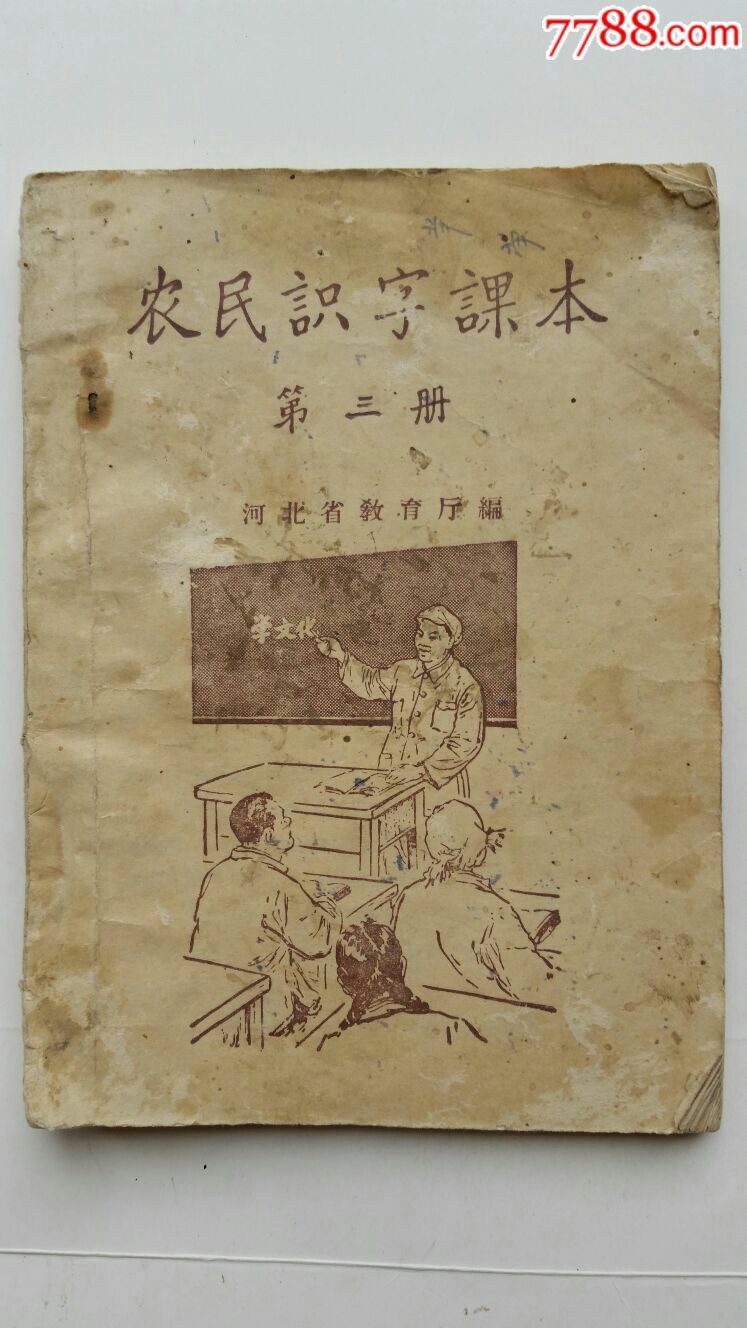 7788.com
学
学
农民訳字課本
第三册
河北省教育厅編
学文化